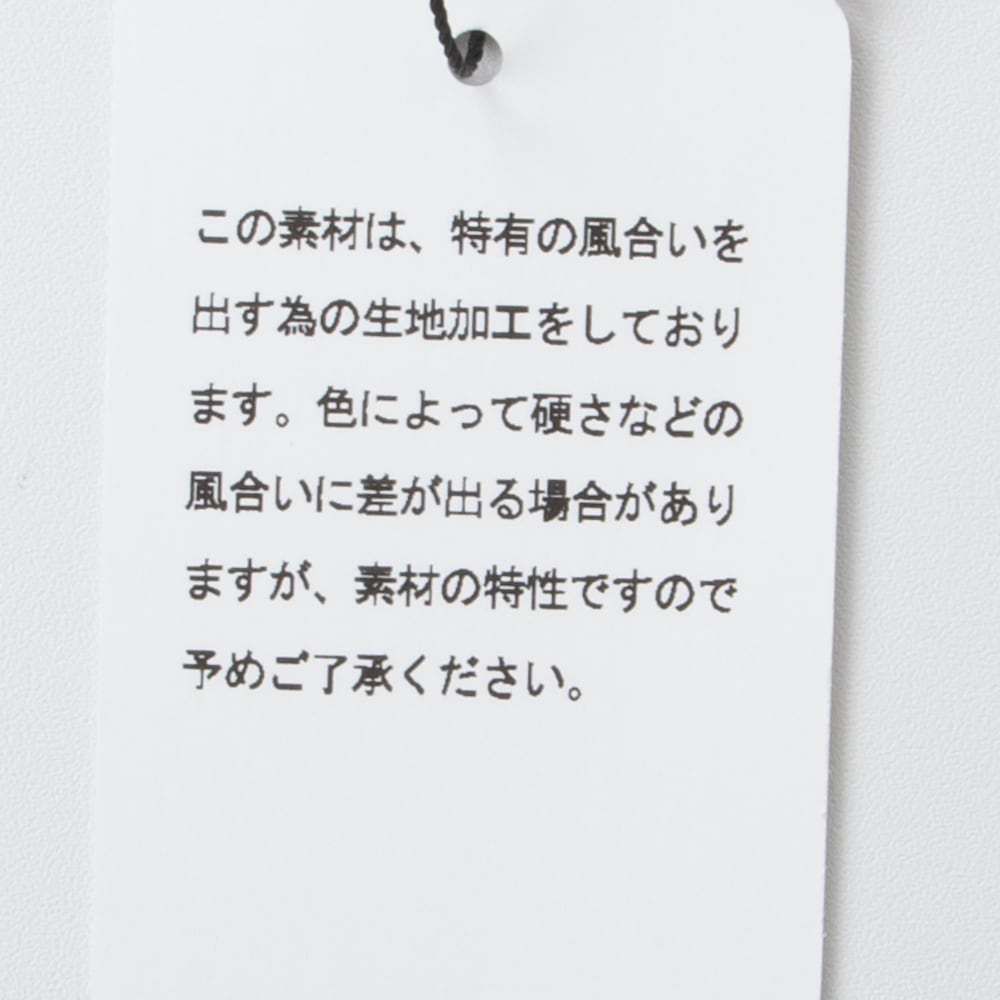 この素材は、特有の風合いを
出す為の生地加工をしており
ます。色によって硬さなどの
風合いに差が出る場合があり
ますが、素材の特性ですので
予めご了承ください。